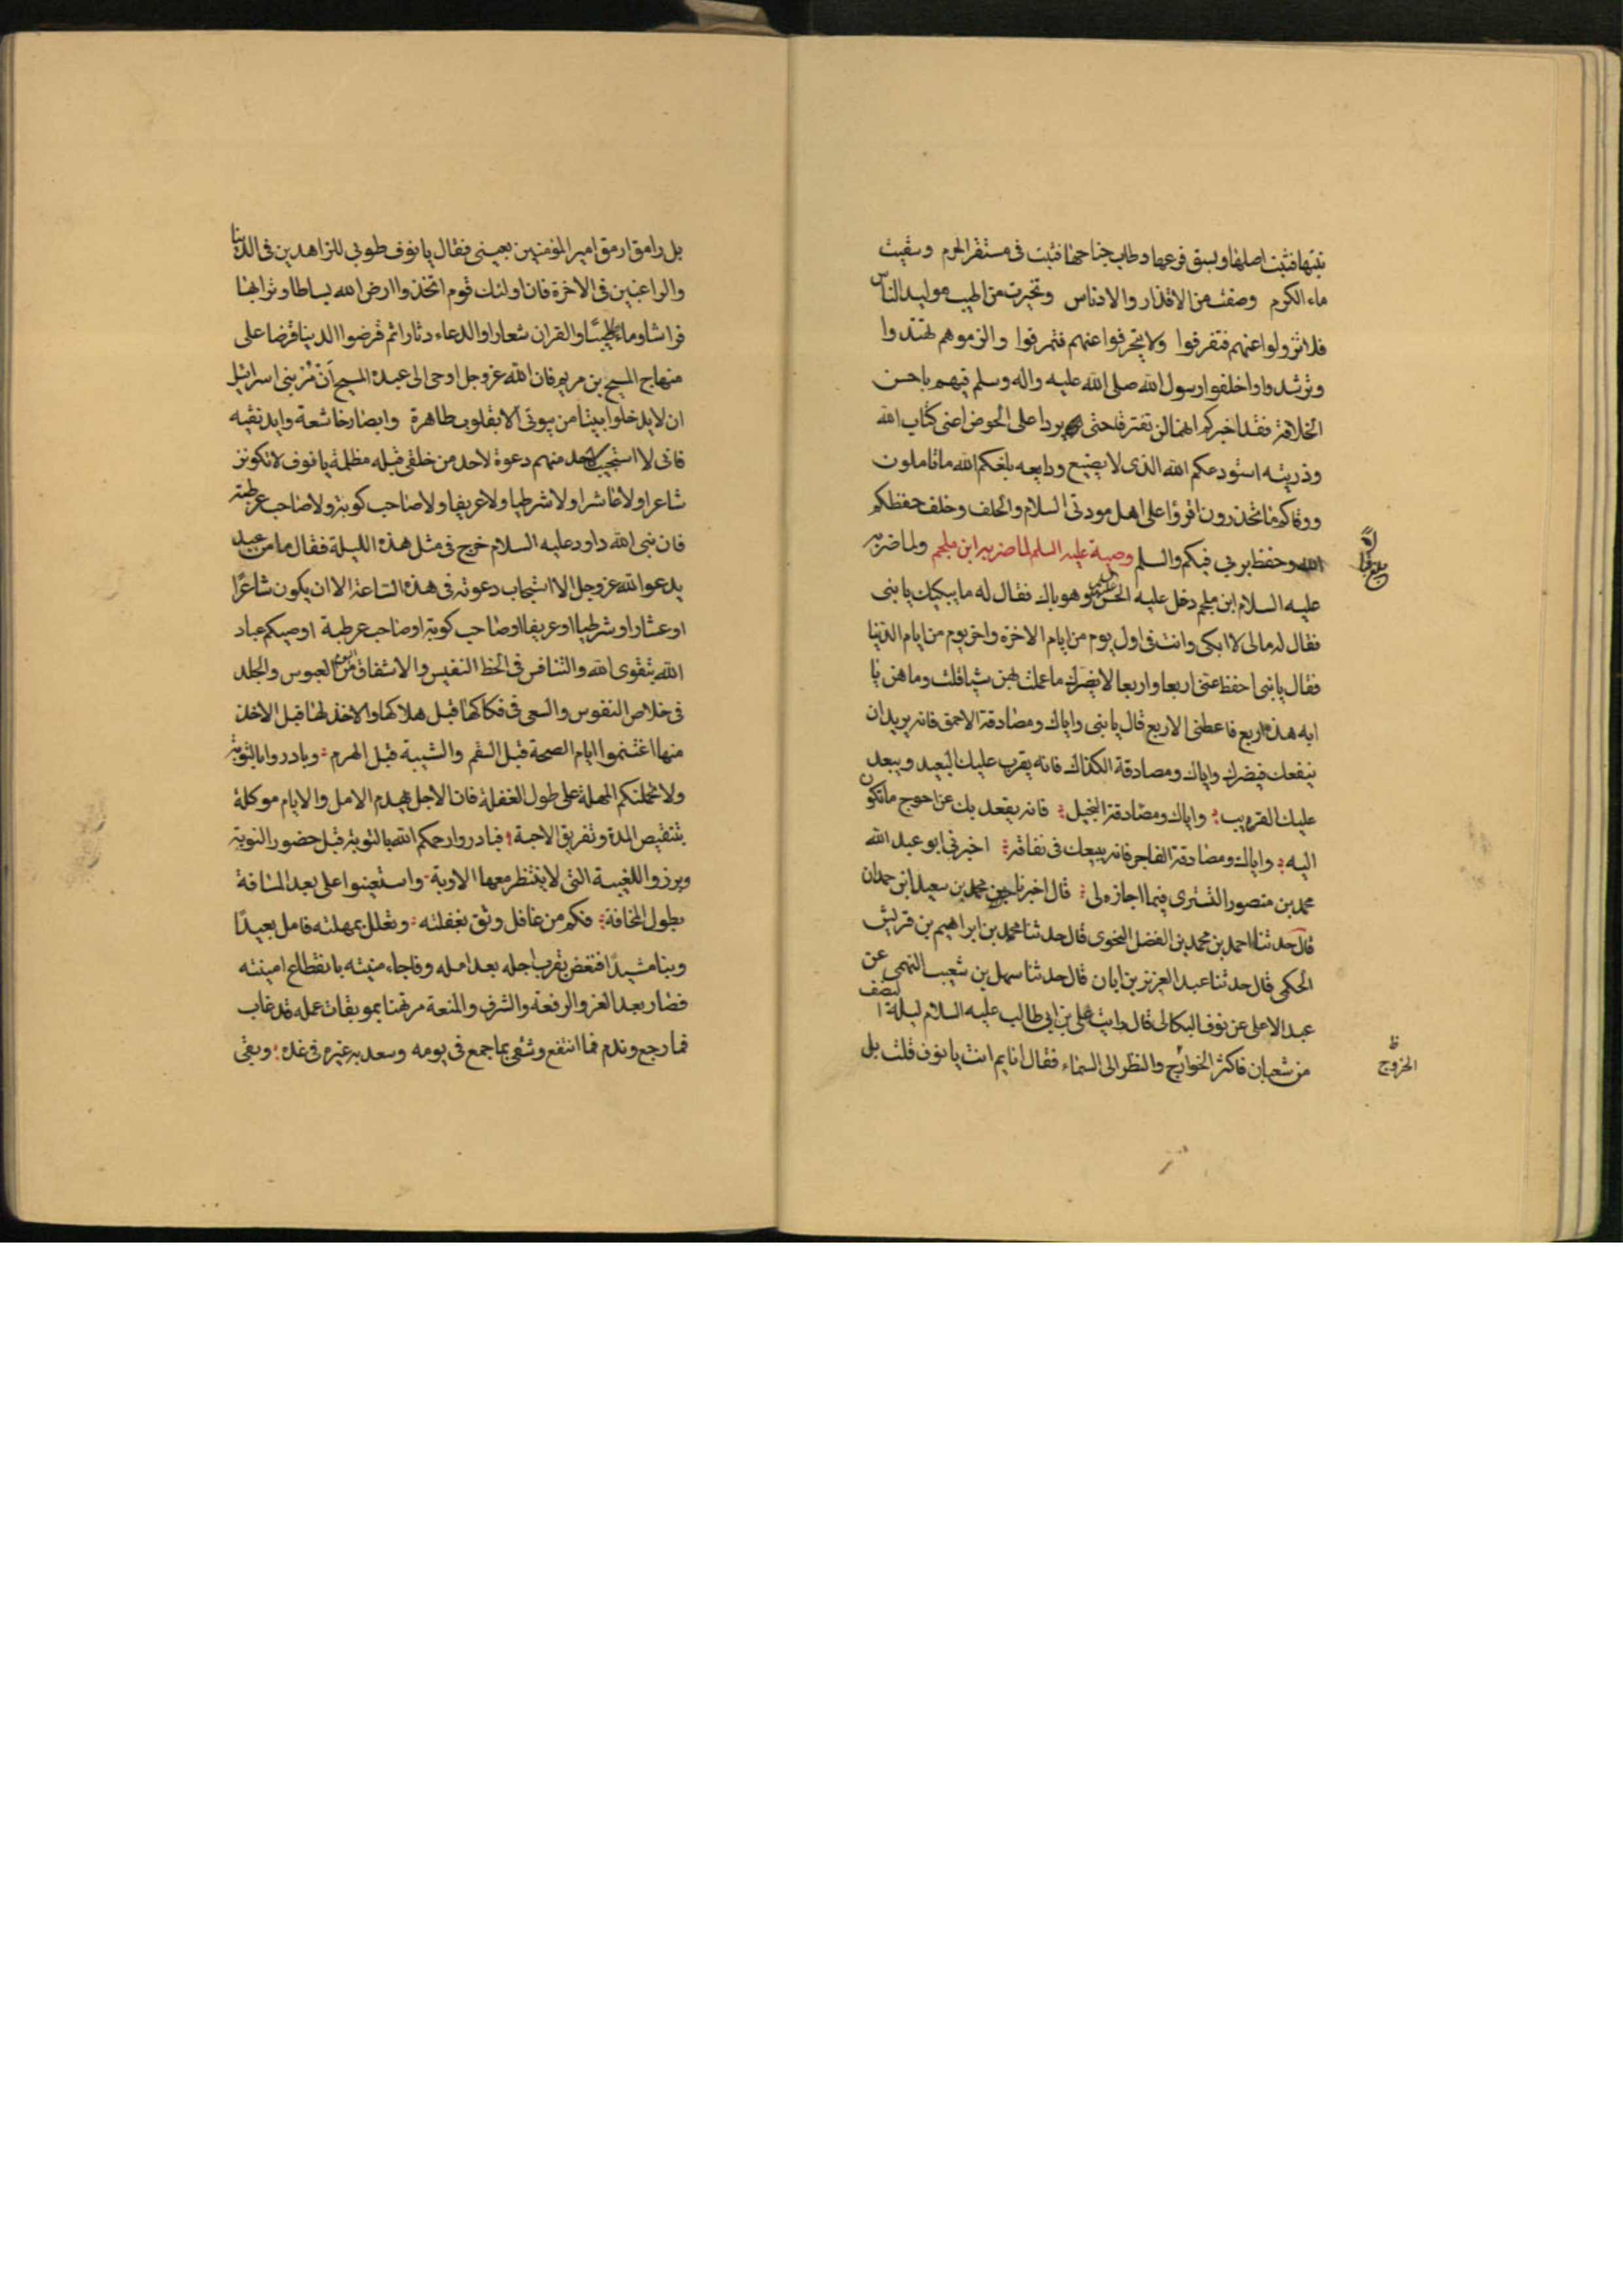 نبتها فثبت اصلها وبسق فرعها وطاب جناحها فثبت فى مستقر الحرم وسقيت
ماء الكرم وصفت من الاقذار والادناس وتخيرت من اطيب مواليد الناس
فلا تزولوا عنهم فتفرقوا ولا تتحرفوا عنهم فتمرقوا والزموهم تهتدوا
وترشدوا واخلفوا رسول الله صلى الله عليه واله وسلم فيهم باحسن
الخلافة فقد اخبركم انهما لن يفترقا حتى يردا على الحوض اعنى كتاب الله
وذريته استودعكم الله الذى لا يضيع ودايعه بلغكم الله ما تاملون
ووقاكم ما تحذرون اقرؤا على اهل مودتى السلام والخلف وخلف حفظكم
الله وحفظ بربى فيكم والسلم وصية عليه السلم لما ضربه ابن ملجم ولما ضربه
عليه السلام ابن ملجم دخل عليه الحسن وهو باك فقال له ما يبكيك يا بنى
فقال له مالى لا ابكى وانت فى اول يوم من ايام الاخرة واخر يوم من ايام الدنيا
فقال يا بنى احفظ عنى اربعا واربعا لا يضرك ما عملت بهن شيا قلت وما هن يا
ابه هذه اربع فاعطنى الاربع قال يا بنى واياك ومصادقة الاحمق فانه يريد ان
ينفعك فيضرك واياك ومصادقة الكذاك فانه يقرب عليك البعيد ويبعد
عليك القريب واياك ومصادقة البخيل فانه يقعد بك عن احوج ما تكون
اليه واياك ومصادقة الفاجر فانه يبيعك فى نفاقه اخبرنى ابو عبد الله
محمد بن منصور التسترى فيما اجازه لى قال اخبرنا محمد بن سعيد ابن حمدان
قال حدثنا احمد بن محمد بن الفضل النحوى قال حدثنا محمد بن ابراهيم بن قريش
الحكمى قال حدثنا عبد العزيز بن ابان قال حدثنا سهل بن شعيب النهمى عن
عبد الاعلى عن نوف البكالى قال رايت على بن ابى طالب عليه السلام ليلة النصف
من شعبان فاكثر الخوارج والنظر الى السماء فقال انايم انت يا نوف قلت بل
ظ
الخروج
بل رامق ارمق امير المؤمنين بعينى فقال يا نوف طوبى للزاهدين فى الدنيا
والراغبين فى الاخرة فان اولئك قوم اتخذوا ارض الله بساطا وترابها
فراشا وماءها طيبا والقران شعارا والدعاء دثارا ثم قرضوا الدينا قرضا على
منهاج المسيح بن مريم فان الله عز وجل اوحى الى عبده المسيح ان مر بنى اسرائيل
ان لا يدخلوا بيتا من بيوتى الا بقلوب طاهرة وابصار خاشعة وايد نقيه
فانى لا استجيب لاحد منهم دعوة لاحد من خلقى قبله مظلمة يا نوف لا تكونن
شاعرا ولا عاشرا ولا شرطيا ولا عريفا ولا صاحب كوبة ولا صاحب عرطبة
فان نبى الله داود عليه السلام خرج فى مثل هذه الليلة فقال ما من عبد
يدعوا الله عز وجل الا استجاب دعوته فى هذه الساعة الا ان يكون شاعرا
او عشارا وشرطيا او عريفا او صاحب كوبة او صاحب عرطبة اوصيكم عباد
الله بتقوى الله والتنافس فى الحظ النفيس والاشفاق من اليوم العبوس والجلد
فى خلاص النفوس والسعى فى فكاكها قبل هلاكها والاخذ لها قبل الاخذ
منها اغتنموا ايام الصحة قبل السقم والشيبة قبل الهرم وبادروا بالتوبة
ولا تحملنكم المهلة على طول الغفلة فان الاجل يهدم الامل والايام موكلة
بتنقيص المدة وتفريق الاحبة فبادروا رحمكم الله بالتوبة قبل حضور النوبة
وبرزوا للغيبة التى لا ينتظر معها الاوبة واستعينوا على بعد المسافة
بطول المخافة فكم من غافل وثق بغفلته وتعلل بمهلته فامل بعيدا
وبنا مشيدا فنغض بقرب اجله بعد امله وفاجاء منيته بانقطاع امينته
فصار بعد العز والرفعة والشرف والمنعة مرتهنا بموبقات عمله قد غاب
فما رجع وندم فما انتفع وشقى بما جمع فى يومه وسعد به غيره فى غده وبقى